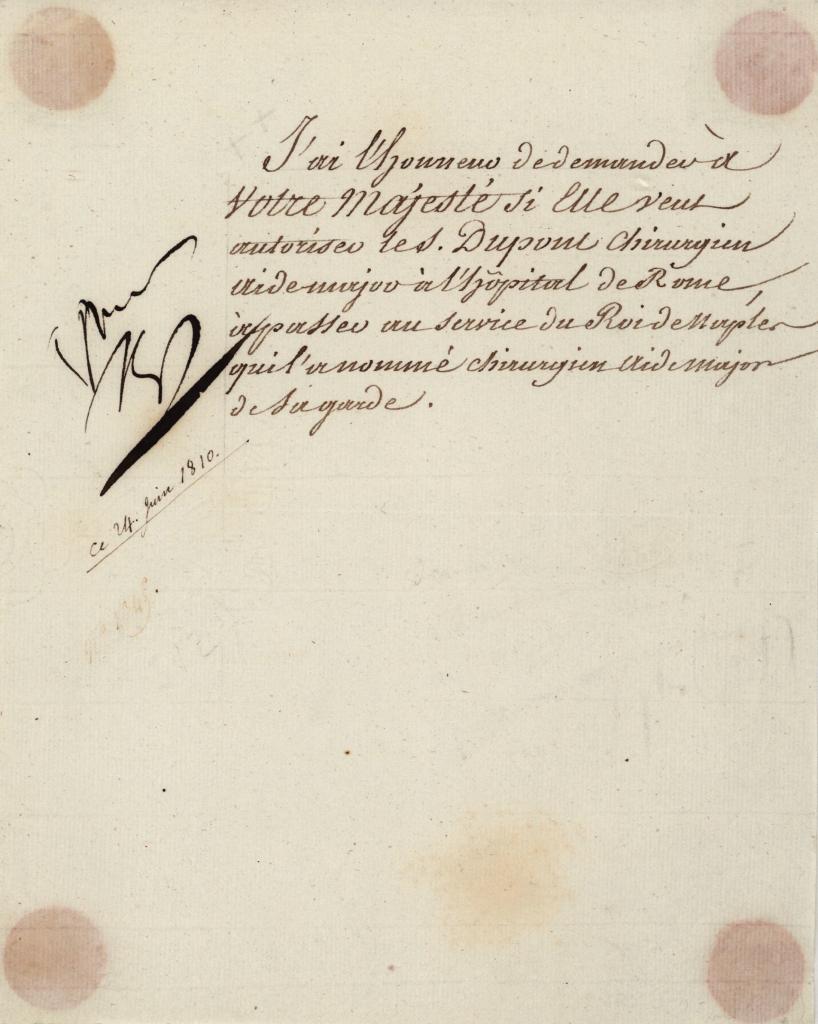 J'ai l'honneur de demander à
Votre Majesté si Elle veut
autoriser le S. Dupont chirurgien
aide major à l'hôpital de Rome,
à passer au service du Roi de Naples
qui l'a nommé chirurgien Aide Major
de sa garde.
ce 24. Juin 1810.